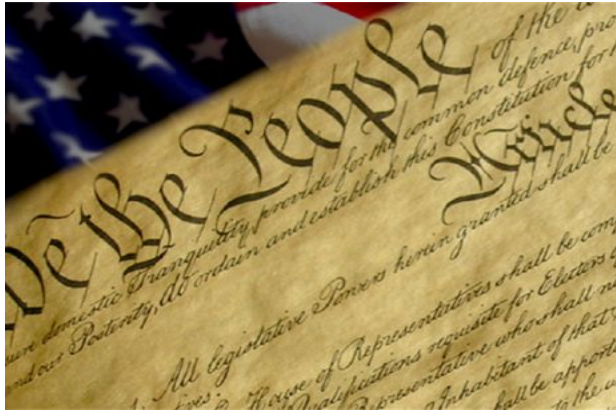 We the People of the
sure domestic Tranquility, provide for the common defence, pro
and our Posterity, do ordain and establish this Constitution for
Article
1. All legislative Powers herein granted shall be
House of Representatives shall be comp
Qualifications requisite for Electors
Representative who shall n
Inhabitant of that
shall be apporti
to the